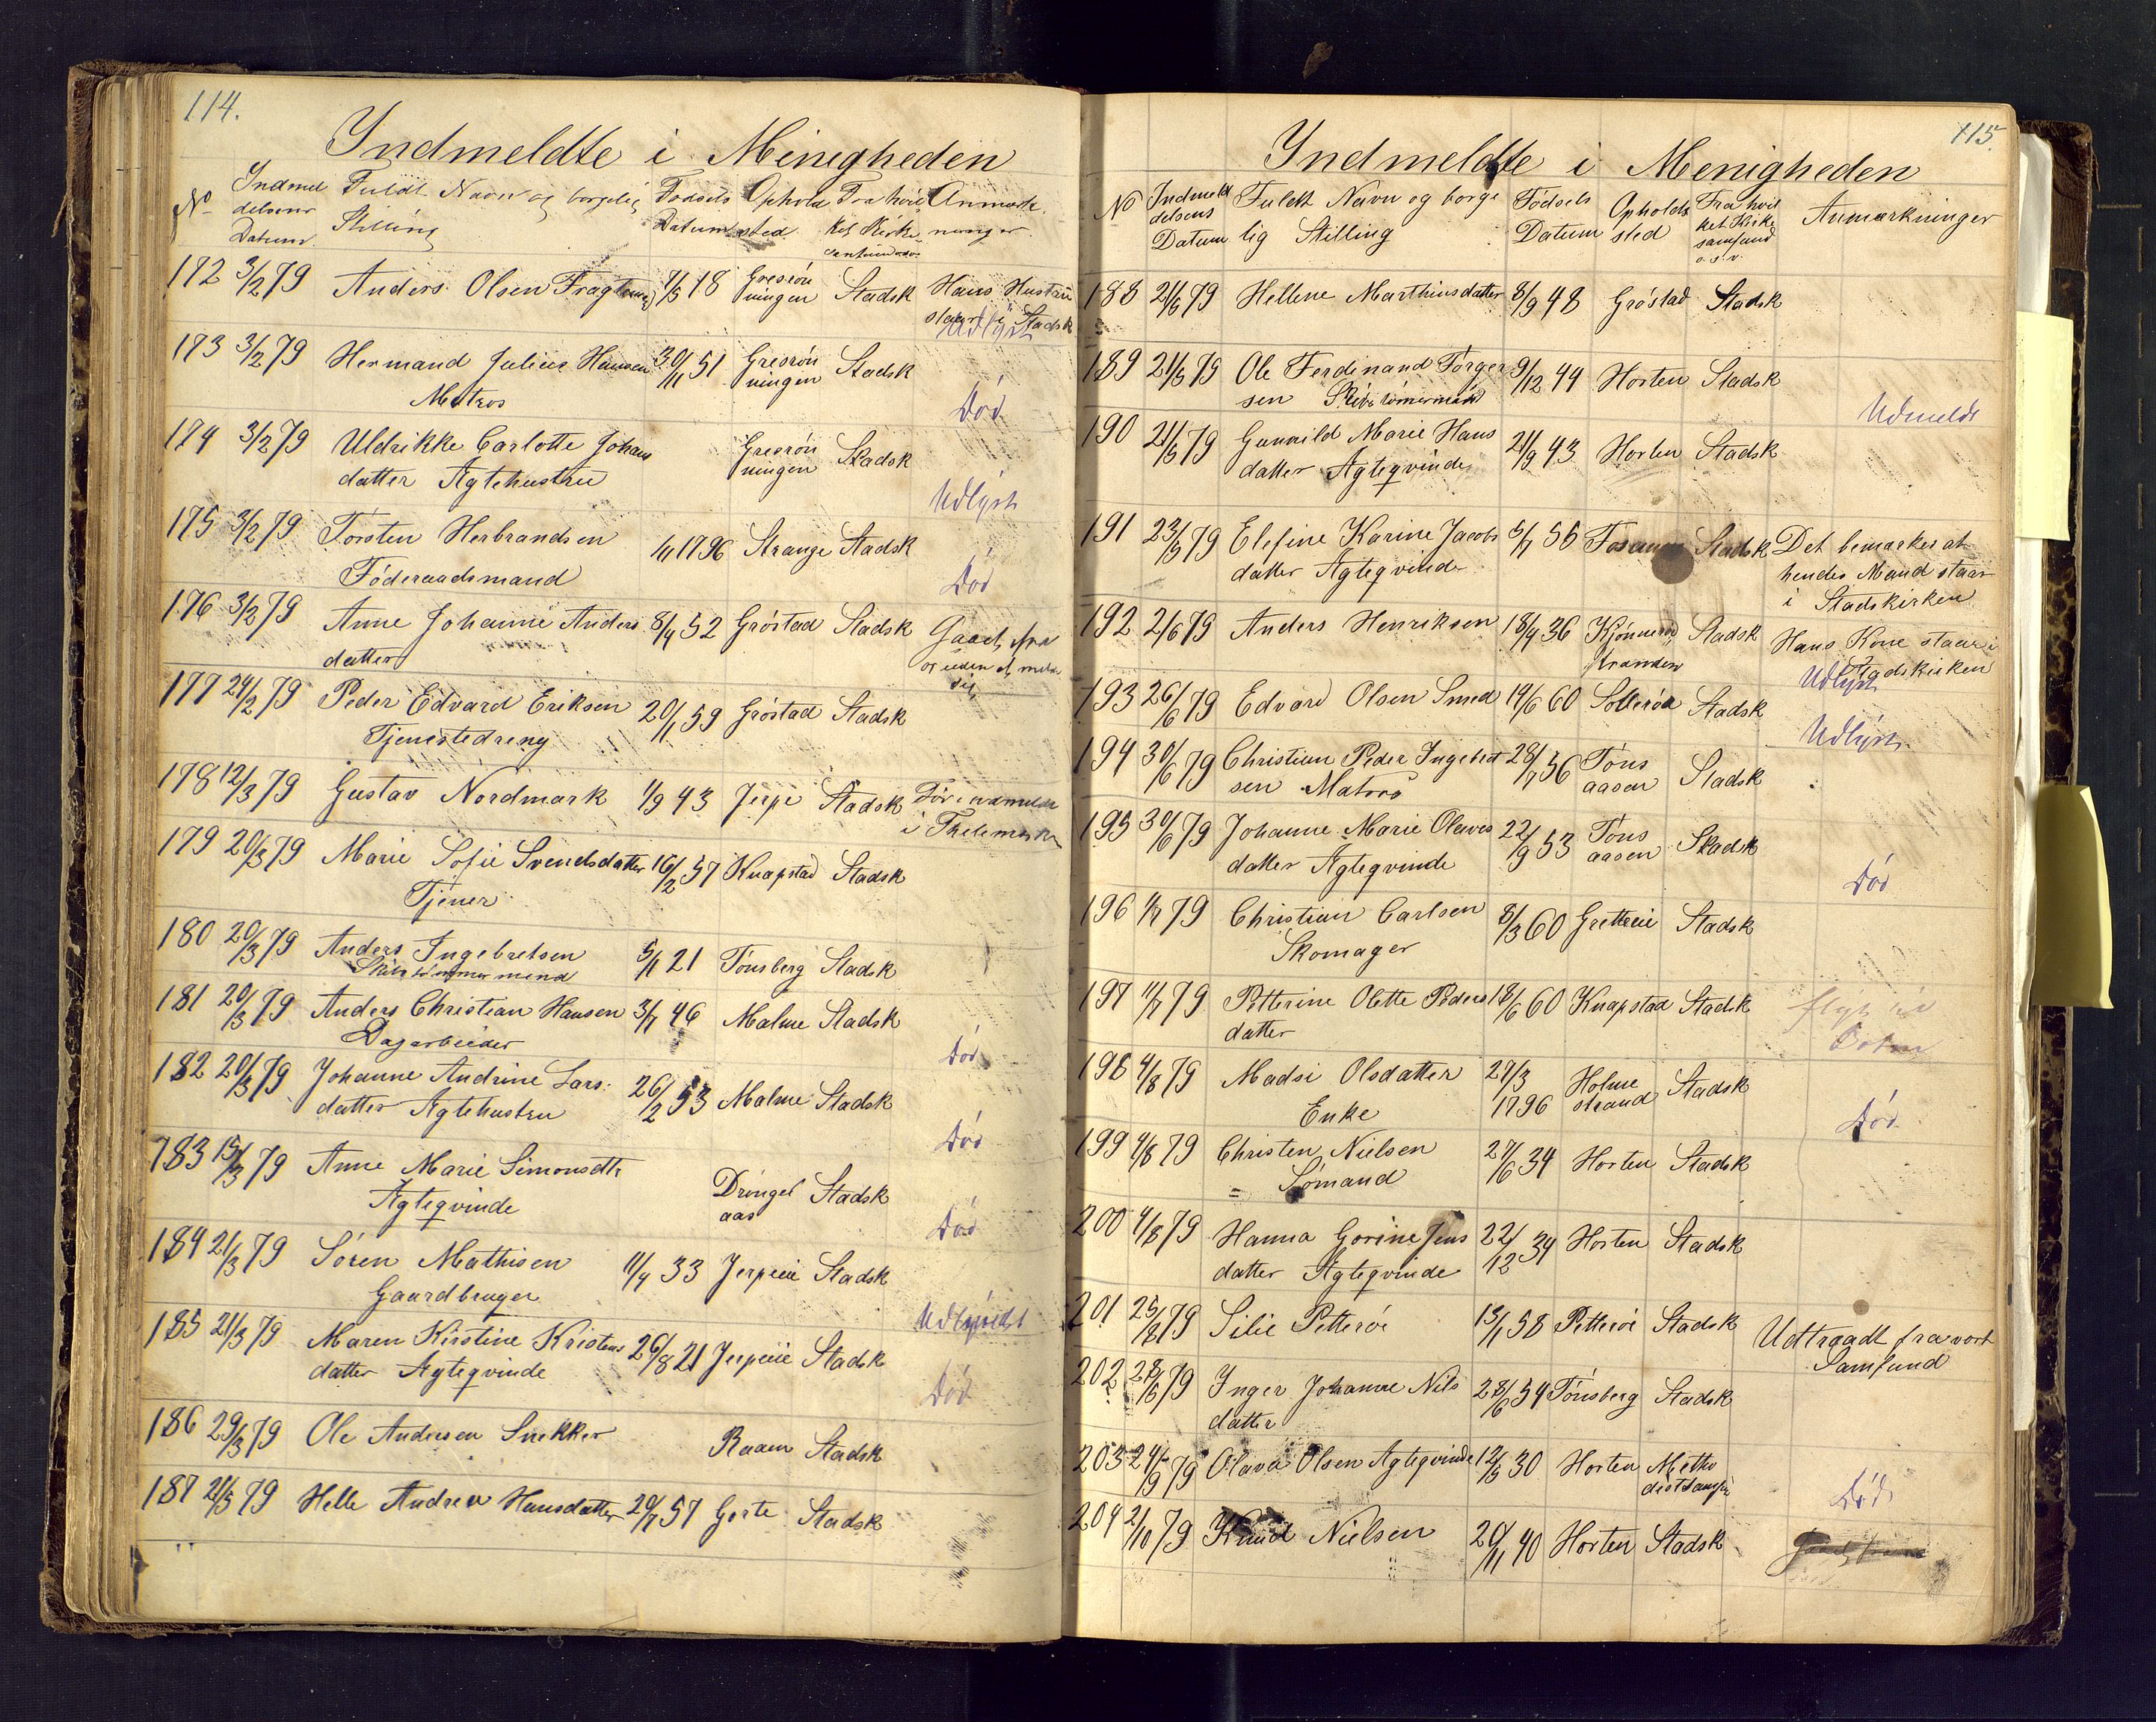 114.
Indmeldte i Minigheden
No Indmel Fuldt Navn og borgelig Fødsels Ophold Fra hvil Anmærk
delsens Stilling Datum sted ket Kirke ninger
Datum
172 3/2 79 Anders Olsen 18 Stadsk Hans Hustru
staar i Stadsk
Udlyst
173 3/2 79 Hermand Julius Hansen 30/11 51 Stadsk
Matros
Død
174 3/2 79 Uldrikke Carlotte Johans Stadsk
datter Ægtehustru
Udlyst
175 3/2 79 Torsten Herbrandsen 1796 Strange Stadsk
Føderaadsmand
Død
176 3/2 79 Anne Johanne Anders 8/4 52 Grøstad Stadsk Gaaet fra
datter os uden at melde
sig
177 24/2 79 Peder Edvard Eriksen 20/1 59 Grøstad Stadsk
Tjenestedreng
178 12/3 79 Gustav Nordmark 1/9 43 Jerpe Stadsk
i Thelemarken
179 20/3 79 Marie Sofie Svendsdatter 16/2 57 Knapstad Stadsk
Tjener
180 20/3 79 Anders Ingebretsen 5/1 21 Tønsberg Stadsk
Skibstømmermend
181 20/3 79 Anders Christian Hansen 3/7 46 Malme Stadsk
Dagarbeider
Død
182 20/3 79 Johanne Andrine Lars- 26/2 53 Malme Stadsk
datter Ægtehustru
Død
183 15/3 79 Anne Marie Simonsdtr Dringel Stadsk
Ægteqvinde aas
Død
184 21/3 79 Søren Mathisen 11/4 33 Jerpeie Stadsk
Gaardbruger
Udlyst
185 21/3 79 Maren Kirstine Kristens 26/8 21 Jerpeie Stadsk
datter Ægteqvinde
Død
186 29/3 79 Ole Andersen Snekker Raaen Stadsk
187 21/5 79 Helle Andrea Hansdatter 20/7 57 Gorte Stadsk
115.
Indmeldte i Menigheden
No Indmeld Fuldt Navn og borge Fødsels Opholds Fra hvil Anmærkninger
delsens lig Stilling Datum sted ket Kirke
Datum samfund
o.s.v.
188 21/5 79 Hellene Marthinsdatter 8/9 48 Grøstad Stadsk
189 21/5 79 Ole Ferdinand Torger 9/12 44 Horten Stadsk
sen Skibstømermand
Udmeldt
190 21/5 79 Gunnild Marie Hans 21/9 43 Horten Stadsk
datter Ægteqvinde
191 23/5 79 Elefine Karine Jacobs 5/7 56 Stadsk Det bemærkes at
datter Ægteqvinde hendes Mand staar
i Stadskirken
192 2/6 79 Anders Henriksen 18/4 36 Stadsk Hans Kone staar i
Stadskirken
Udlyst
193 26/6 79 Edvard Olsen Smed 14/6 60 Sollerød Stadsk
Udlyst
194 30/6 79 Christian Peder Ingebret 28/7 56 Tøns Stadsk
sen Matros aasen
195 30/6 79 Johanne Marie Olaves 22/9 53 Tøns Stadsk
datter Ægteqvinde aasen
Død
196 1/7 79 Christian Carlsen 8/3 60 Stadsk
Skomager
197 11/7 79 Petterine Olette Peders 18/6 60 Knapstad Stadsk
datter
198 4/8 79 Madsi Olsdatter 27/3 Holme Stadsk
Enke 1796 strand
Død
199 4/8 79 Christen Nielsen 27/6 34 Horten Stadsk
= Sømand
200 4/8 79 Hanna Gorine Jens 22/12 34 Horten Stadsk
datter Ægteqvinde
201 25/8 79 Silie Petterøe 13/1 58 Petterøe Stadsk Udtraadt fra vort
Samfund
202 28/8 79 Inger Johanne Nils 28/6 54 Tønsberg Stadsk
datter
203 24/9 79 Olava Olsen Ægteqvinde 12/5 30 Horten Metho
distsamf
Død
204 2/10 79 Knud Nielsen 20/11 40 Horten Stadsk